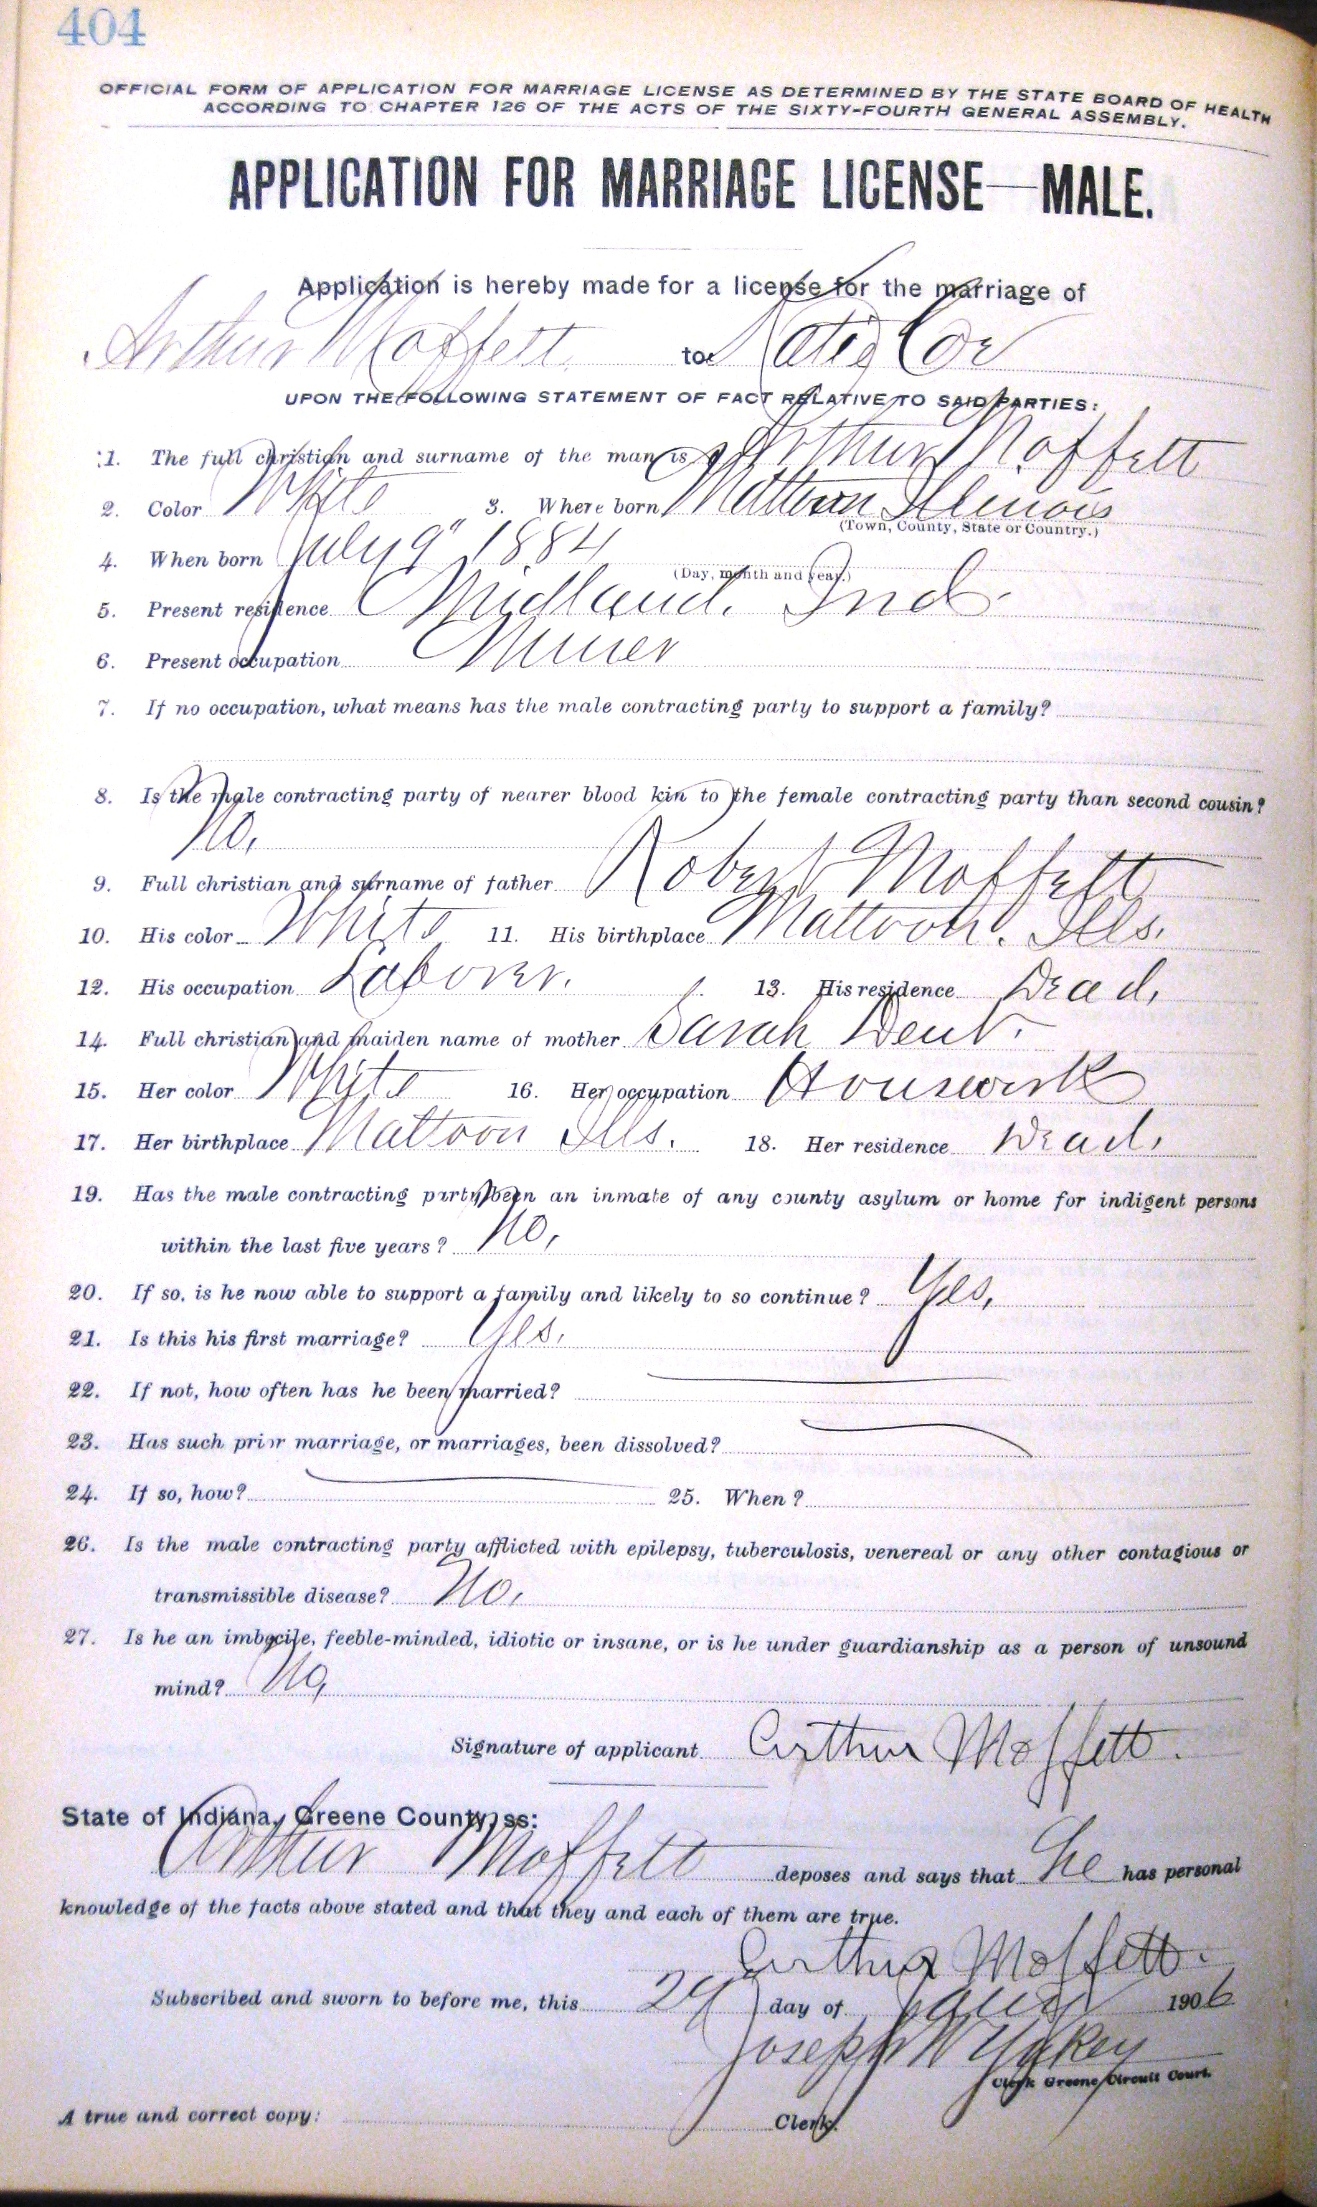 404
OFFICIAL FORM OF APPLICATION FOR MARRIAGE LICENSE AS DETERMINED BY THE STATE BOARD OF HEALTH
ACCORDING TO CHAPTER 126 OF THE ACTS OF THE SIXTY-FOURTH GENERAL ASSEMBLY.
APPLICATION FOR MARRIAGE LICENSE—MALE.
Application is hereby made for a license for the marriage of
Arthur Moffett to Katie Cox
UPON THE FOLLOWING STATEMENT OF FACT RELATIVE TO SAID PARTIES:
1. The full christian and surname of the man is Arthur Moffett
2. Color White 3. Where born Mattoon Illinois
(Town, County, State or Country.)
4. When born July 9" 1884
(Day, month and year.)
5. Present residence Midland, Ind.
6. Present occupation Miner
7. If no occupation, what means has the male contracting party to support a family?
8. Is the male contracting party of nearer blood kin to the female contracting party than second cousin?
No,
9. Full christian and surname of father Robert Moffett
10. His color White 11. His birthplace Mattoon. Ills.
12. His occupation Laborer. 13. His residence Dead,
14. Full christian and maiden name of mother Sarah Dent.
15. Her color White 16. Her occupation Housework
17. Her birthplace Mattoon Ills. 18. Her residence Dead,
19. Has the male contracting party been an inmate of any county asylum or home for indigent persons
within the last five years? No,
20. If so, is he now able to support a family and likely to so continue? Yes,
21. Is this his first marriage? Yes.
22. If not, how often has he been married?
23. Has such prior marriage, or marriages, been dissolved?
24. If so, how? 25. When?
26. Is the male contracting party afflicted with epilepsy, tuberculosis, venereal or any other contagious or
transmissible disease? No,
27. Is he an imbecile, feeble-minded, idiotic or insane, or is he under guardianship as a person of unsound
mind? No,
Signature of applicant Arthur Moffett.
State of Indiana, Greene County, ss:
Arthur Moffett deposes and says that he has personal
knowledge of the facts above stated and that they and each of them are true.
Arthur Moffett.
Subscribed and sworn to before me, this 29 day of Jany 1906
Joseph W Yakey
Clerk Greene Circuit Court.
A true and correct copy: Clerk.